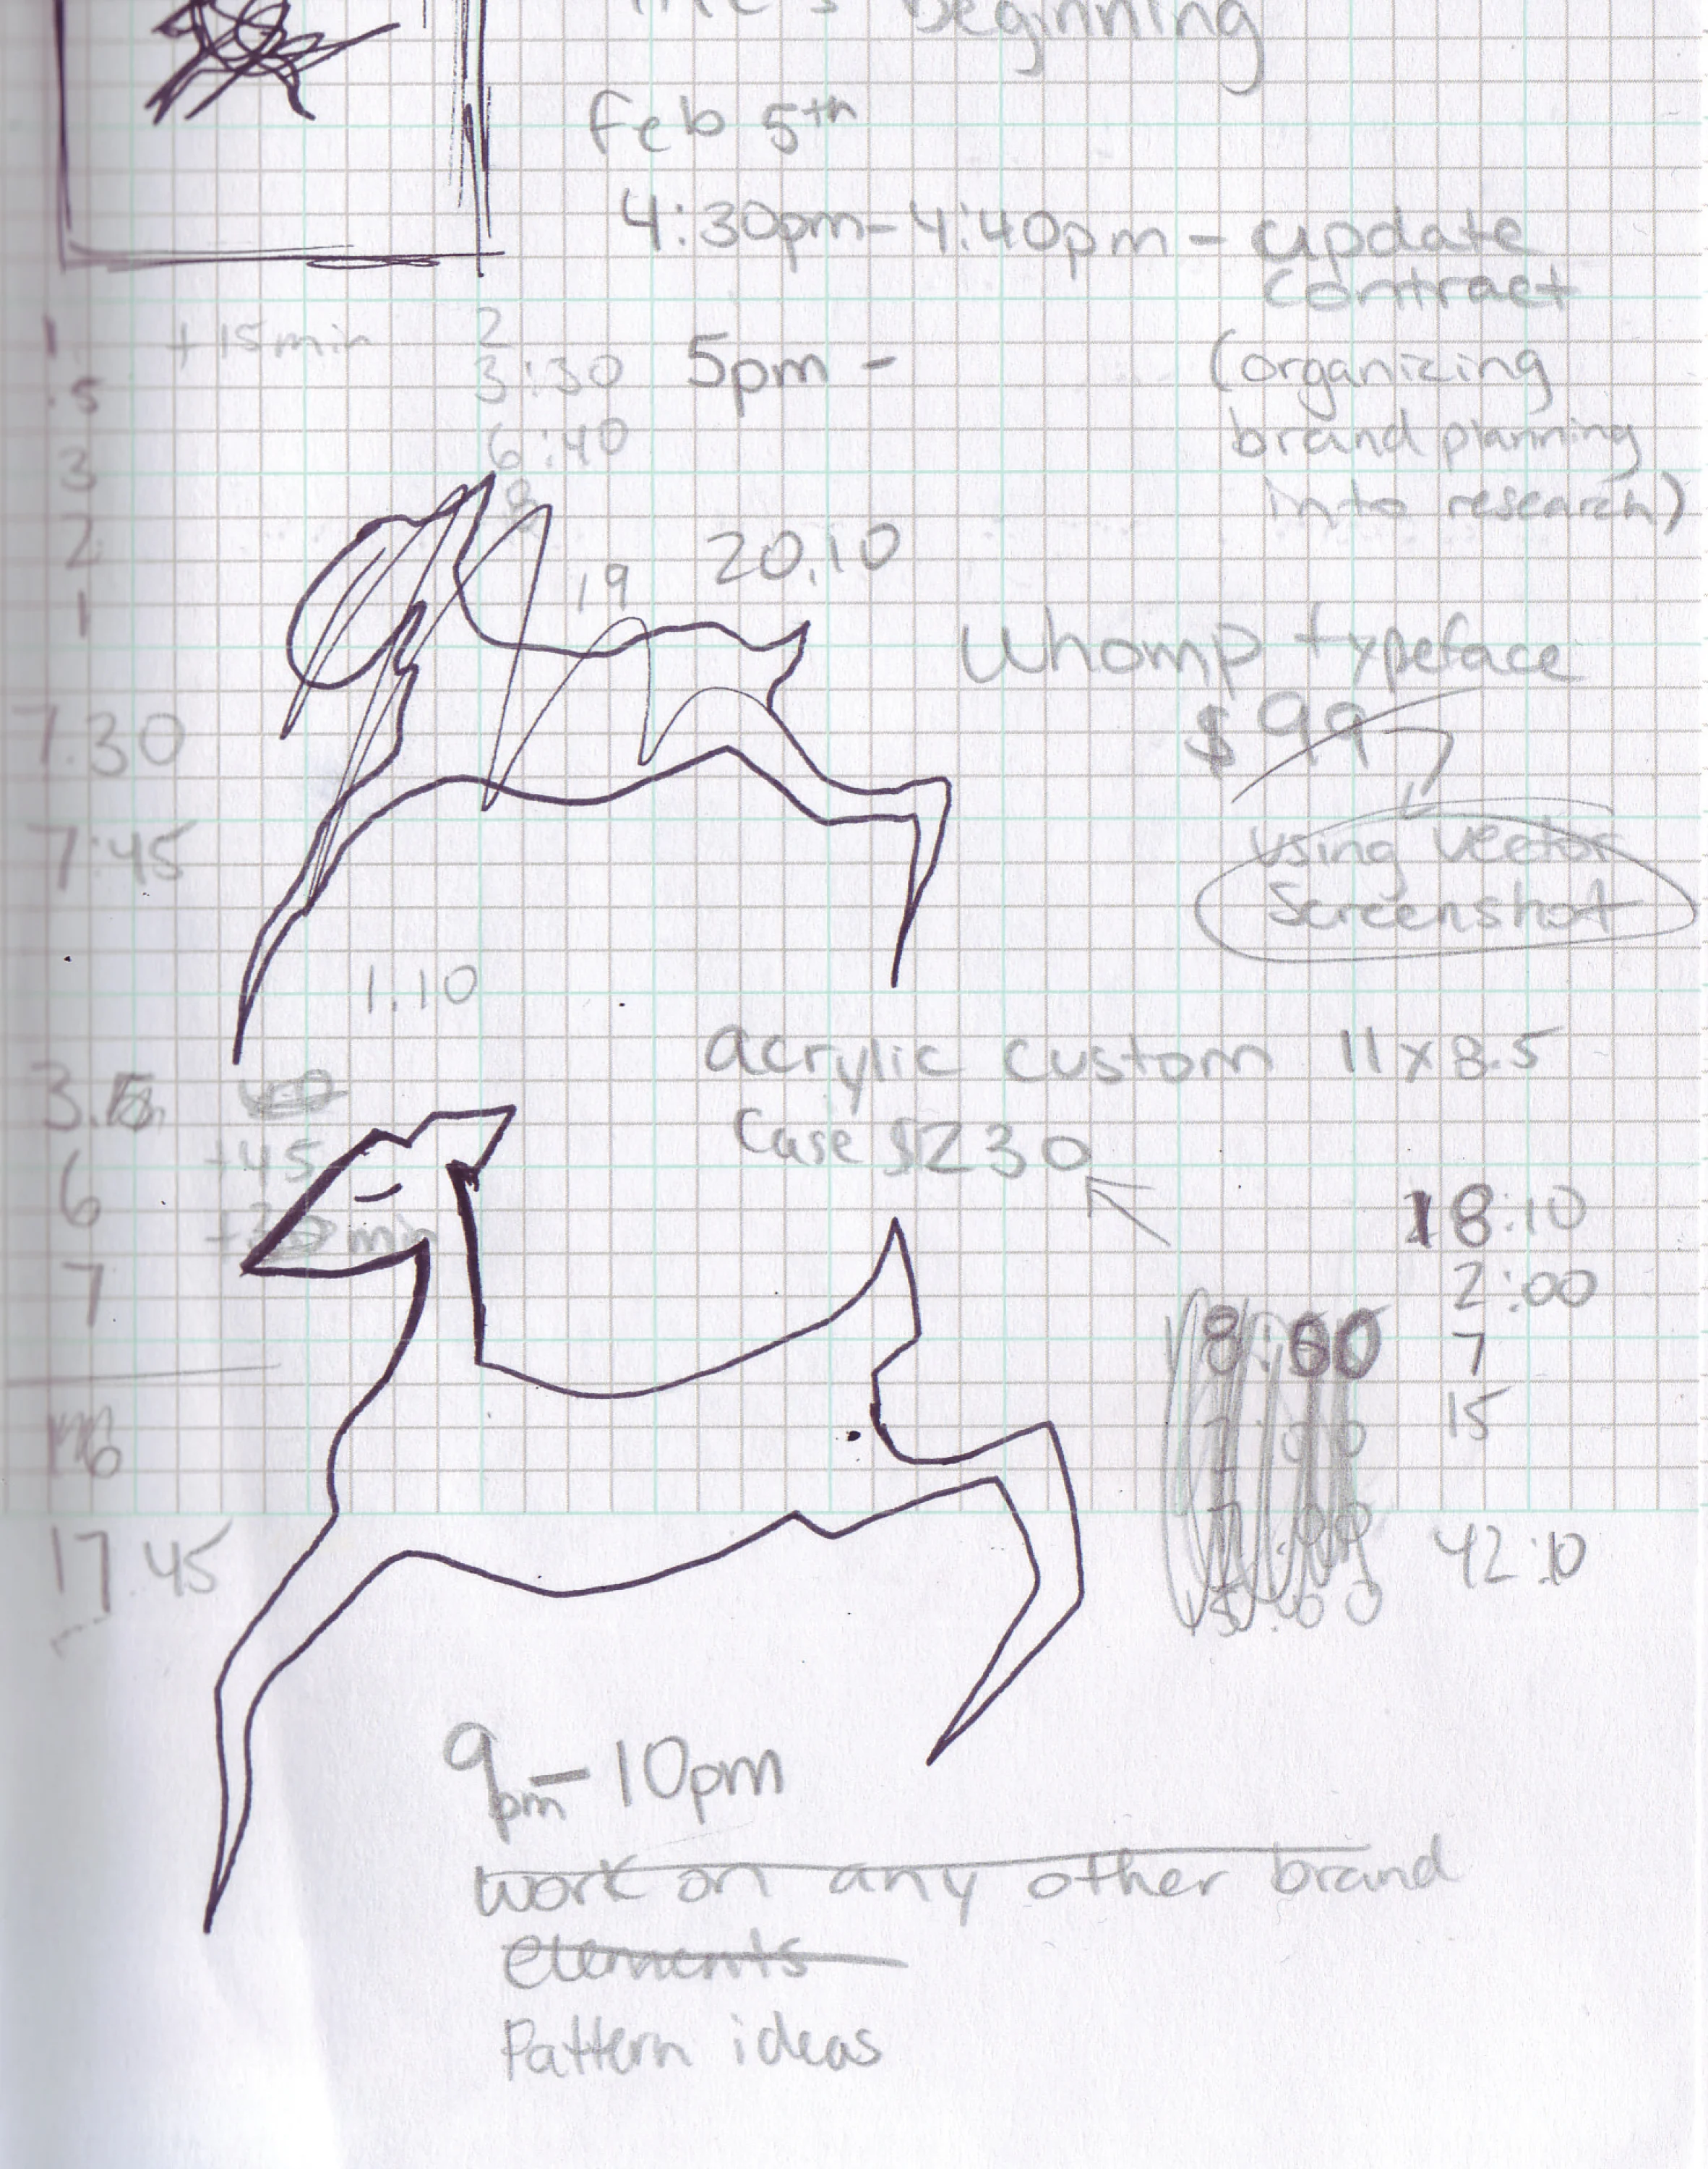 Beginning
Feb 5th
4:30pm-4:40pm - update
contract
+15min
2
1
.5
3:30
5pm -
(organizing
6:40
brand planning
3
8
into research)
2
19
20.10
1
Whomp typeface
$99
7.30
using vector
7:45
Screenshot
1.10
acrylic custom 11x8.5
3.15
Case $230
+45
6
min
18:10
7
2:00
8:00
7
15
16
42:10
17.45
9pm-10pm
work on any other brand
elements
Pattern ideas